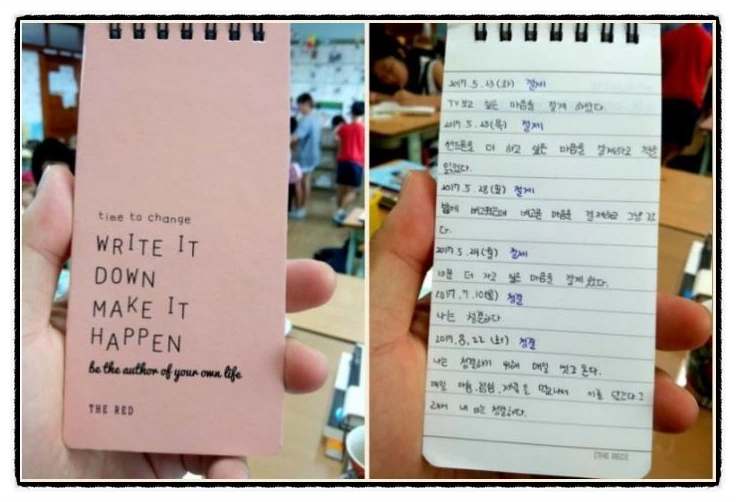 time to change
WRITE IT
DOWN
MAKE IT
HAPPEN
be the author of your own life
THE RED
2017. 5. 23 (화) 절제
TV보고 싶은 마음을 절제 하였다.
절제
핸드폰을 더 하고 싶은 마음을 절제하고 책을
읽었다.
2017. 5. 28 절제
배고픈 마음을 절제하고 그냥 잤
다.
2017. 5. 29 (월) 절제
10분 더 자고 싶은 마음을 절제 했다.
2017. 7. 10(월) 청결
나는 청결하다
2017. 8. 22 (화) 청결
나는 청결하기 위해 매일 씻고 온다.
매일 아침, 점심, 저녁을 먹고나서 이를 닦는다.
그래서 내 이는 청결하다.
[THE RED]